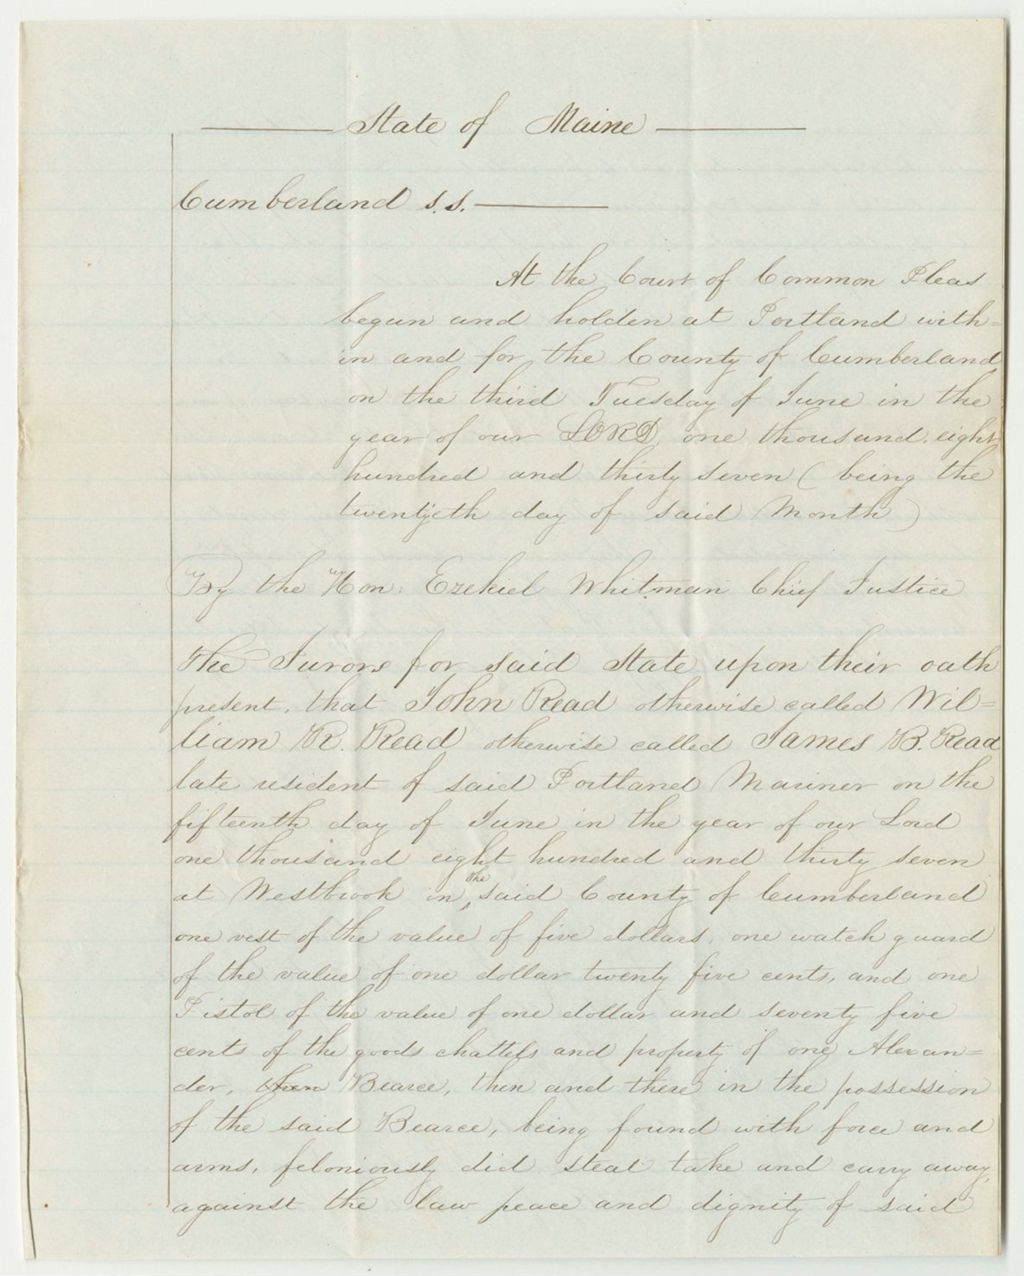 State of Maine
Cumberland s.s.
At the Court of Common Pleas
begun and holden at Portland with=
in and for the County of Cumberland
on the third Tuesday of June in the
year of our LORD one thousand eight
hundred and thirty seven (being the
twentyeth day of said Month)
By the Hon: Ezekiel Whitman Chief Justice
The Jurors for said State upon their oath
present, that John Read otherwise called Wil=
liam R. Read otherwise called James B. Read
late resident of said Portland Mariner on the
fifteenth day of June in the year of our Lord
one thousand eight hundred and thirty seven
at Westbrook in the said County of Cumberland
one vest of the value of five dollars, one watch guard
of the value of one dollar twenty five cents, and one
Pistol of the value of one dollar and seventy five
cents of the goods chattels and property of one Alexan=
der, Bearce, then and there in the possession
of the said Bearce, being found with force and
arms, feloniously did steal take and carry away,
against the law peace and dignity of said